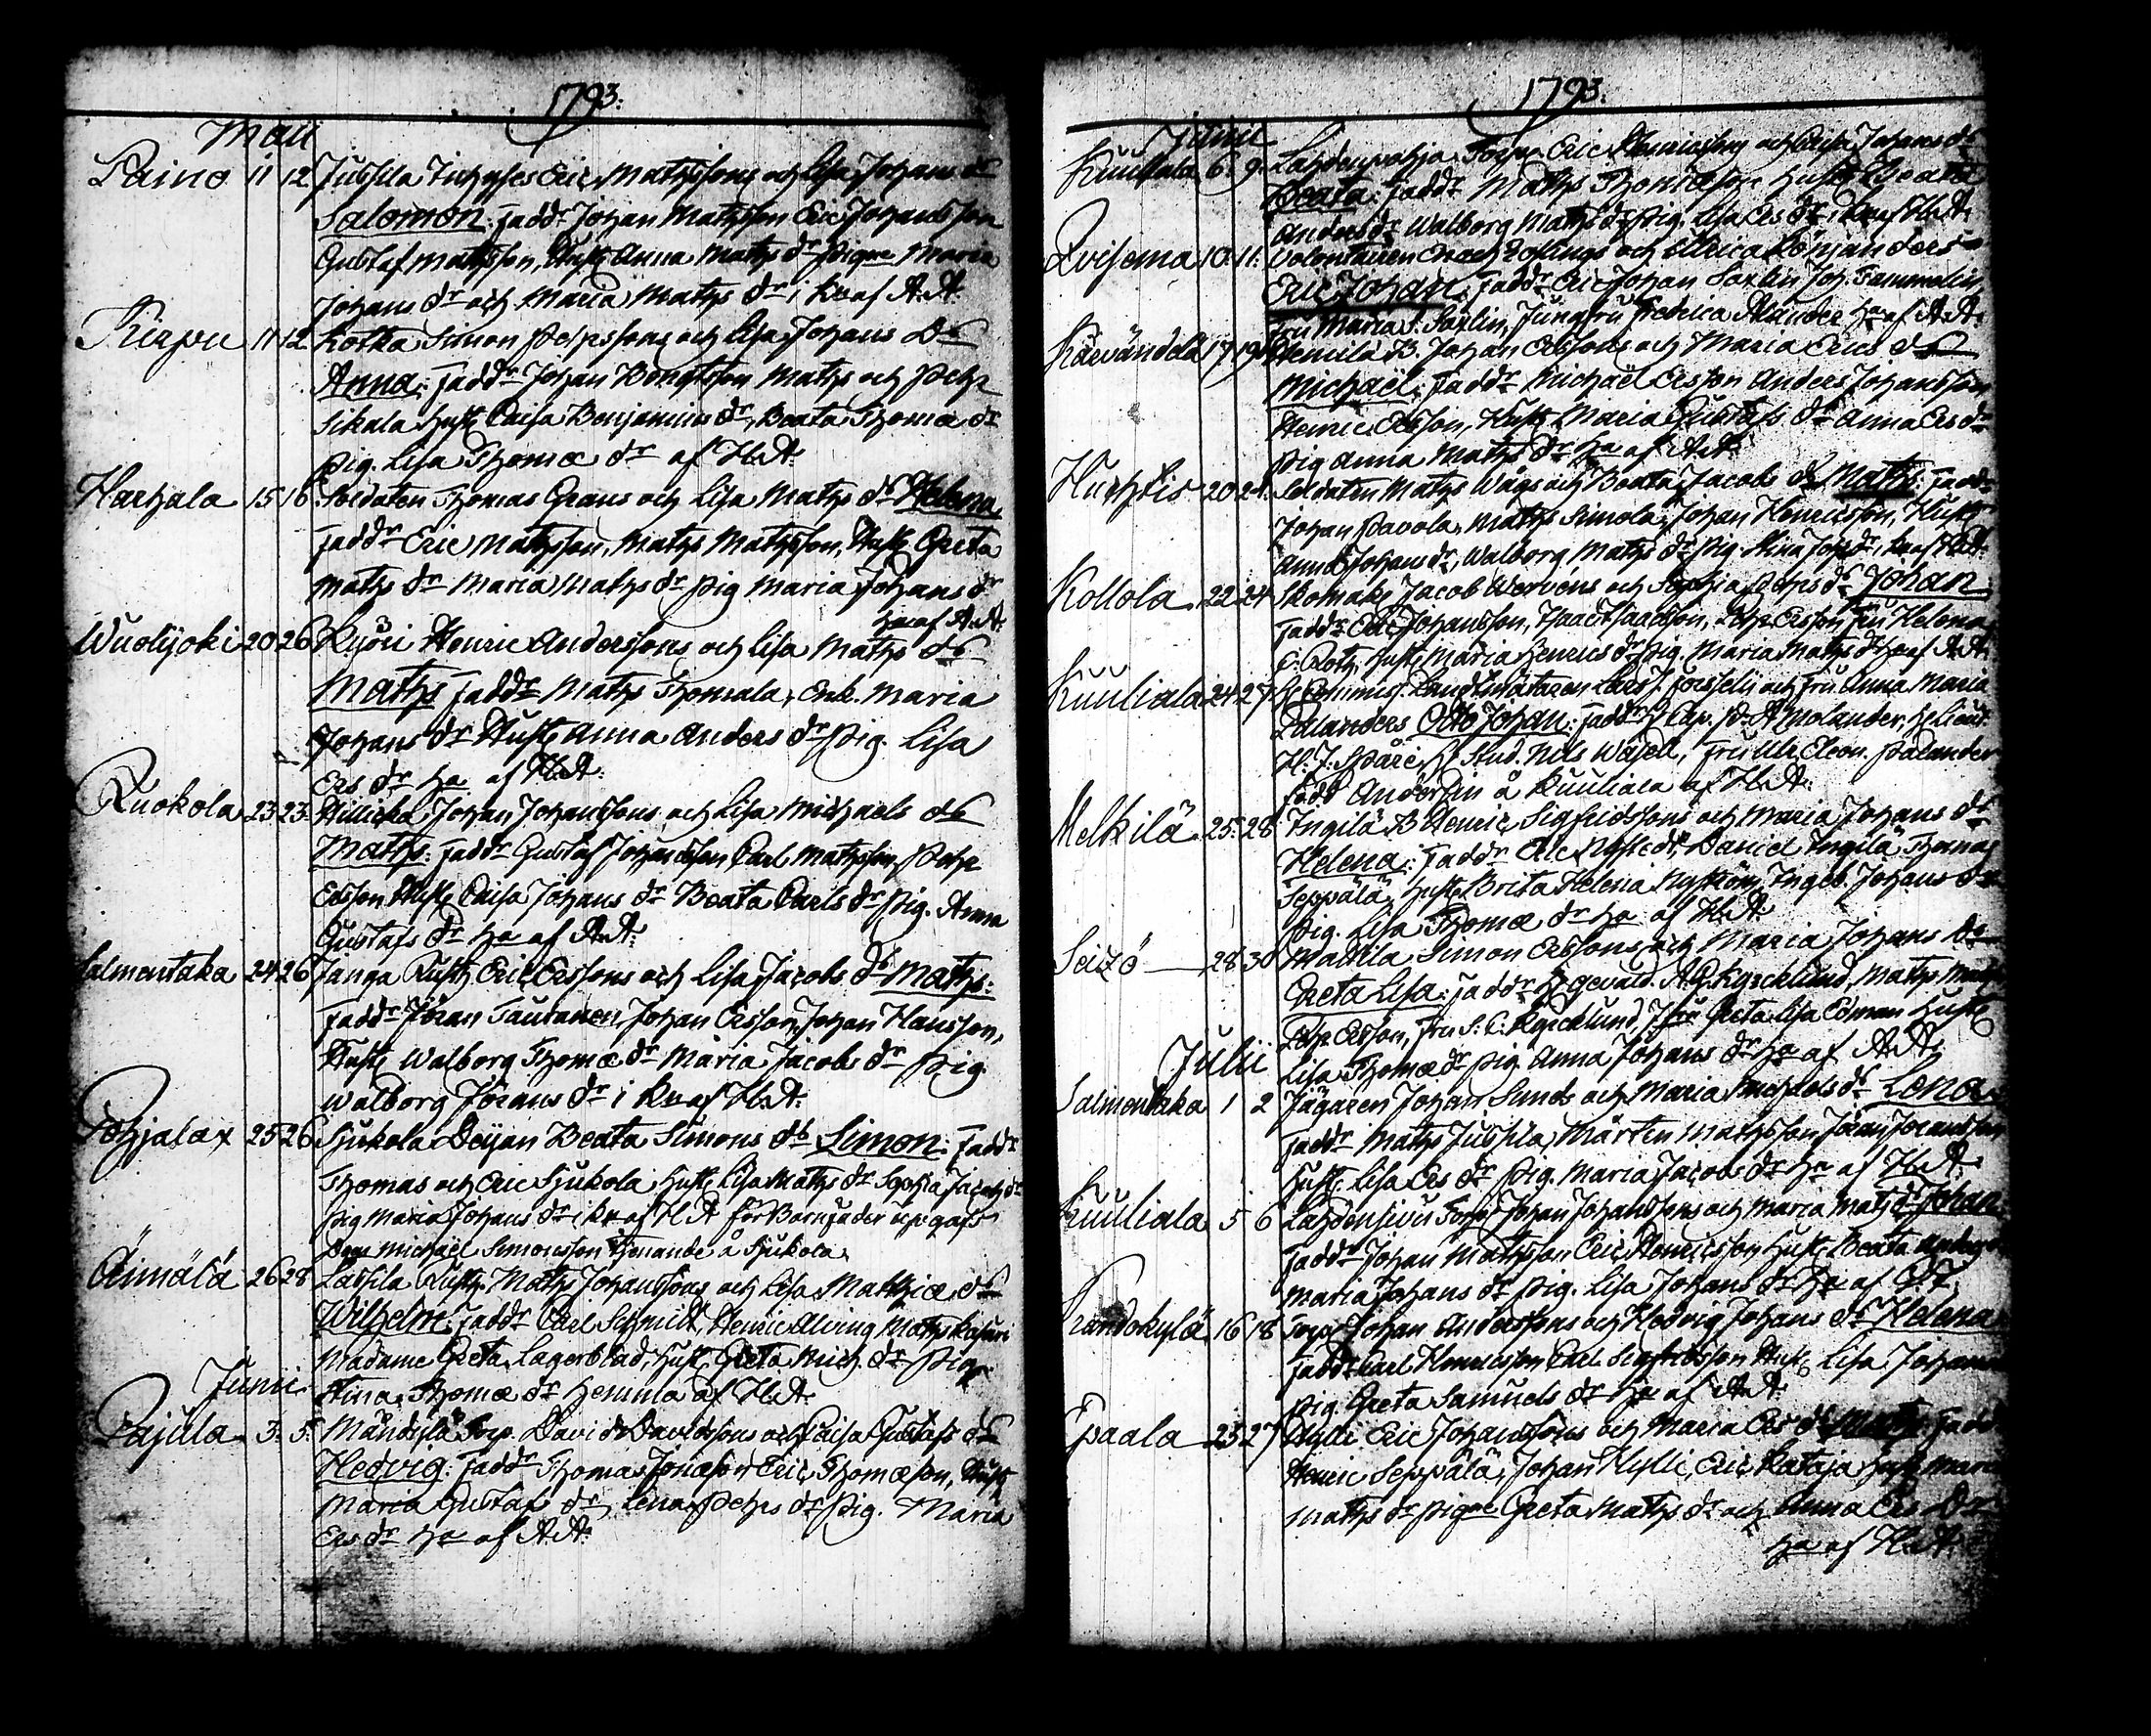 1793.
Maii
Laino 11 12 Jussila Inhyses Eric Mathssons och Lisa Johans dr
Salomon. Faddr Johan Mathsson Eric Johansson
Gustaf Mattsson, Hust. Anna Maths dr Pigne Maria
Johans dr och Maria Maths dr i kv af A.A.
11 12 Kotka Simon Pehrssons och Lisa Johans Dr
Anna: Faddr Johan Bengtsson Maths och Pehr
Sikala Hust. Caisa Benjamins dr, Beata Thomæ dr
Pig. Lisa Thomæ dr af H.A.
Harhala 15 16 Soldaten Thomas Grans och Lisa Maths dr Helena
Faddr Eric Mathsson, Maths Mathsson, Hust. Greta
Maths dr Maria Maths dr Pig Maria Johans dr
ha af A.A.
Wuolijoki 20 26 Kyöri Henric Anderssons och Lisa Maths dr
Maths Faddr Maths Thomala, Enk. Maria
Johans dr Hust. Anna Anders dr Pig. Lisa
Ers dr ha af H.A.
Ruokola 23 23 Johan Johanssons och Lisa Michaels dr
Maths: Faddr Gustaf Johansson, Carl Mathsson, Pehr
Ersson Hust. Caisa Johans dr Beata Carls dr Pig. Anna
Gustafs dr ha af A.A.
Salmentaka 24 26 Janga Rusth. Eric Erssons och Lisa Jacobs dr Maths:
Faddr Jöran Tauranen, Johan Ersson, Johan Hansson,
Hust. Walborg Thomæ dr Maria Jacobs dr Pig.
Walborg Jörans dr i kv af H.A.
Pohjalax 25 26 Sjukola Deijan Beata Simons dr Simon: Faddr
Thomas och Eric Sjukola, Hust. Lisa Maths dr Sophia Jacobs dr
Pig Maria Johans dr i kv af H A För Barnfader uppgafs
Michaël Simonsson tjenande å Sjukola
Äimälä 26 28 Lassila Rusth. Maths Johanssons och Lisa Matthiæ dr
Wilhelm: Faddr Carl Schmidt, Henric Alving Maths
Madame Greta Lagerblad, Hust. Greta Mich. dr Pig.
Stina Thomæ dr hemma af H.A.
Junii
Pajula 3. 5. Mändilä Torp. David Davidssons och Caisa Gustafs dr
Hedvig: Faddr Thomas Jonæson Eric Thomæson, Hust.
Maria Gustafs dr, Lena Pehrs dr Pig. Maria
Ers dr ha af A.A.
1793.
Junii
Kuuliala 6. 9. Lahdenpohja Torp. Eric Henricssons och Caisa Johans dr
Beata: Faddr Maths Thomæson Hust. Beata
Anders dr Walborg Maths dr Pig. Lisa Ers dr i kv af H.A.
10 11. Volontairen Enoch och Ulrica
Eric Johan. Faddr Eric Johan Saxlin Joh. Tammelin
Fru Maria S. Saxlin, Jungfru Fredrica Alander ha af A.A.
17 19 Hemilä B. Johan Erssons och Maria Erics dr
Michaël: Faddr Michaël Ersson Anders Johansson,
Henric Ersson, Hust. Maria Gustafs dr Anna Ers dr
Pig Anna Maths dr ha af A.A.
Huhtis 20 21. Soldaten Maths Wågs och Beata Jacobs dr Maths: Faddr
Johan Pavola, Maths Simola, Johan Henricsson, Hust.
Anna Johans dr, Walborg Maths dr Pig. Stina Joh. dr, i kv af H.A.
Kollola 22 24 Skomak. Jacob Wervens och Sophia Pehrs dr Johan.
Faddr Eric Johansson, Isaac Isaacsson, Pehr Ersson Fru Helena
C. Roth, Hust. Maria Henrics dr Pig. Maria Maths dr ha af A.A.
Kuuliala 24 27 H. Commiss. Landtmätaren Lars J. Forsselii och Fru Anna Maria
Palanders Otto Johan: Faddr H. Cap. Molander, H. Lieut.
H. J. Spåre H. Stud. Nils Wäsell, Fru Ulr. Eleon. Palander
Andersin å Kuuliala af H.A.
Melkilä 25. 28 Ingilä B Henric Sigfridssons och Maria Johans dr
Helena: Faddr Eric Nystedt, Daniel Ingilä Thomas
Seppälä, Hust. Brita Helena Nyström, Ingeb. Johans dr
Pig. Lisa Thomæ dr ha af H.A.
28 30 Mattila Simon Erssons och Maria Johans dr
Greta Lisa: Faddr H. Maths
Pehr Ersson, Fru S. C. Jfru Greta Lisa Edman Hust.
Lisa Thomæ dr Pig Anna Johans dr ha af A.A.
Julii
Salmentaka 1 2 Jägaren Johan Sunds och Maria Michaels dr Lena
Faddr Maths Jussila, Mårten Mathsson Jöran Joransson
Hust. Lisa Ers dr Pig. Maria Jacobs dr ha af H.A.
Kuuliala 5 6 Lahdensivu Torp. Johan Johanssons och Maria Maths dr Johan
Faddr Johan Mathsson Eric Henricsson, Hust. Beata Anders
Maria Johans dr Pig. Lisa Johans dr ha af
16 18 Torp. Johan Anderssons och Hedvig Johans dr Helena
Faddr Carl Henricsson Carl Sigfridsson Hust. Lisa Johans
Pig. Greta Samuels dr ha af A.A.
Upaala 23 27 Kylli Eric Johanssons och Maria Ers dr Maths. Faddr
Henric Seppälä, Johan Kylli, Eric Kataja Hust. Maria
Maths dr Pigne Greta Maths dr och Anna Ers dr
ha af H.A.